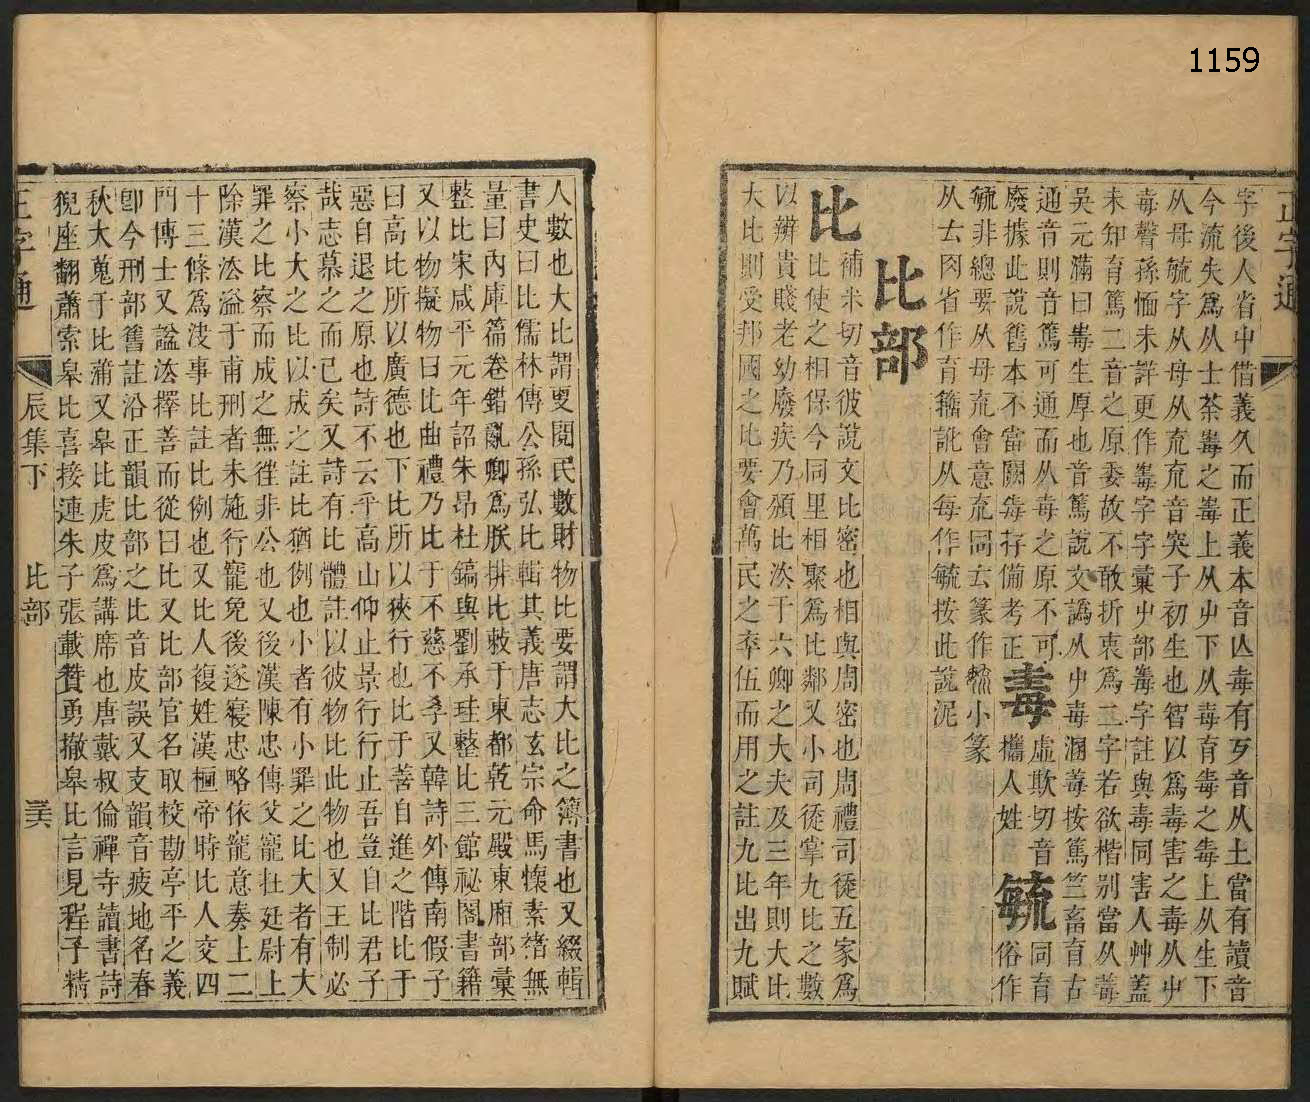 1159
正字通
字後人省中借義久而正義本音亾毒有歹音从土當有讀音
今流失爲从士荼毒之毒上从屮下从毒育毒之毒上从生下
从母毓字从母从㐬㐬音突子初生也智以爲毒害之毒从屮
毒聲孫愐未詳更作毒字字彙屮部毒字註與毒同害人艸蓋
未知育篤二音之原委故不敢折衷爲二字若欲楷别當从毒
吳元滿曰毒生厚也音篤說文譌从屮毒溷毒按篤竺畜育古
通音則音篤可通而从毒之原不可
廢據此說舊本不當闕毒存備考正
毒
虛欺切音
攜人姓
毓
同育
俗作
毓非總要从母㐬會意㐬同𠫓篆作毓小篆
从𠫓肉省作育籀訛从每作毓按此說泥
比部
比
補米切音彼說文比密也相與周密也周禮司徒五家爲
比使之相保今同里相聚爲比鄰又小司徒掌九比之數
以辨貴賤老幼廢疾乃頒比法于六卿之大夫及三年則大比
大比則受邦國之比要會萬民之卒伍而用之註九比出九賦
人數也大比謂更閱民數財物比要謂大比之簿書也又綴輯
書史曰比儒林傳公孫弘比輯其義唐志玄宗命馬懷素褚無
量曰內庫篇卷錯亂卿爲朕排比敕于東都乾元殿東廂部彙
整比宋咸平元年詔朱昂杜鎬與劉承珪整比三館祕閣書籍
又以物擬物曰比曲禮乃比于不慈不孝又韓詩外傳南假子
曰高比所以廣德也下比所以狹行也比于善自進之階比于
惡自退之原也詩不云乎高山仰止景行行止吾豈自比君子
哉志慕之而已矣又詩有比體註以彼物比此物也又王制必
察小大之比以成之註比猶例也小者有小罪之比大者有大
罪之比察而成之無徃非公也又後漢陳忠傳父寵在廷尉上
除漢法溢于甫刑者未施行寵免後遂寝忠略依寵意奏上二
十三條爲決事比註比例也又比人複姓漢桓帝時比人交四
門博士又諡法擇善而從曰比又比部官名取校勘亭平之義
卽今刑部舊註沿正韻比部之比音皮誤又支韻音疲地名春
秋大蒐于比蒲又皋比虎皮爲講席也唐戴叔倫禪寺讀書詩
猊座翻蕭索皋比喜接連朱子張載贊勇撤皋比言見程子精
正字通
辰集下
比部